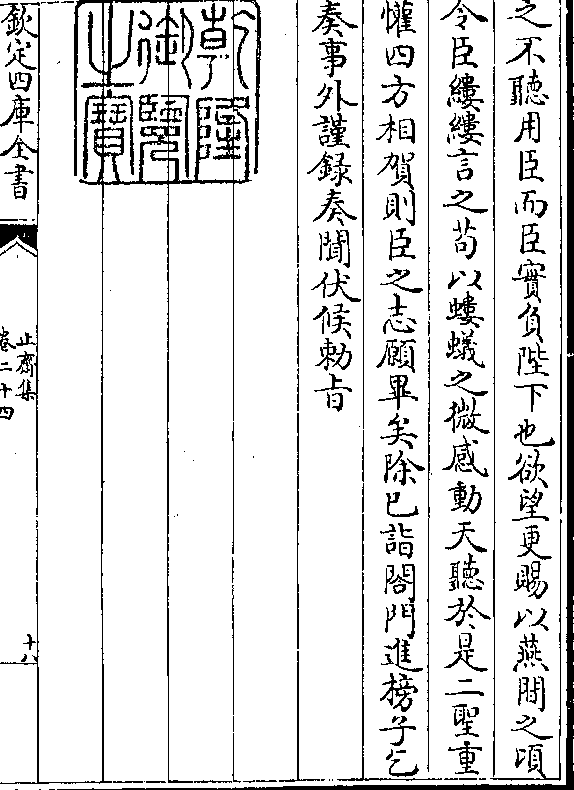 之不聽用臣而臣實負陛下也欲望更賜以燕閒之頃
令臣縷縷言之苟以螻蟻之微感動天聽於是二聖重
懽四方相賀則臣之志願畢矣除已詣閤門進榜子乞
奏事外謹録奏聞伏候勅旨
乾隆御覽之寶
欽定四庫全書
止齋集
卷二十四
十八